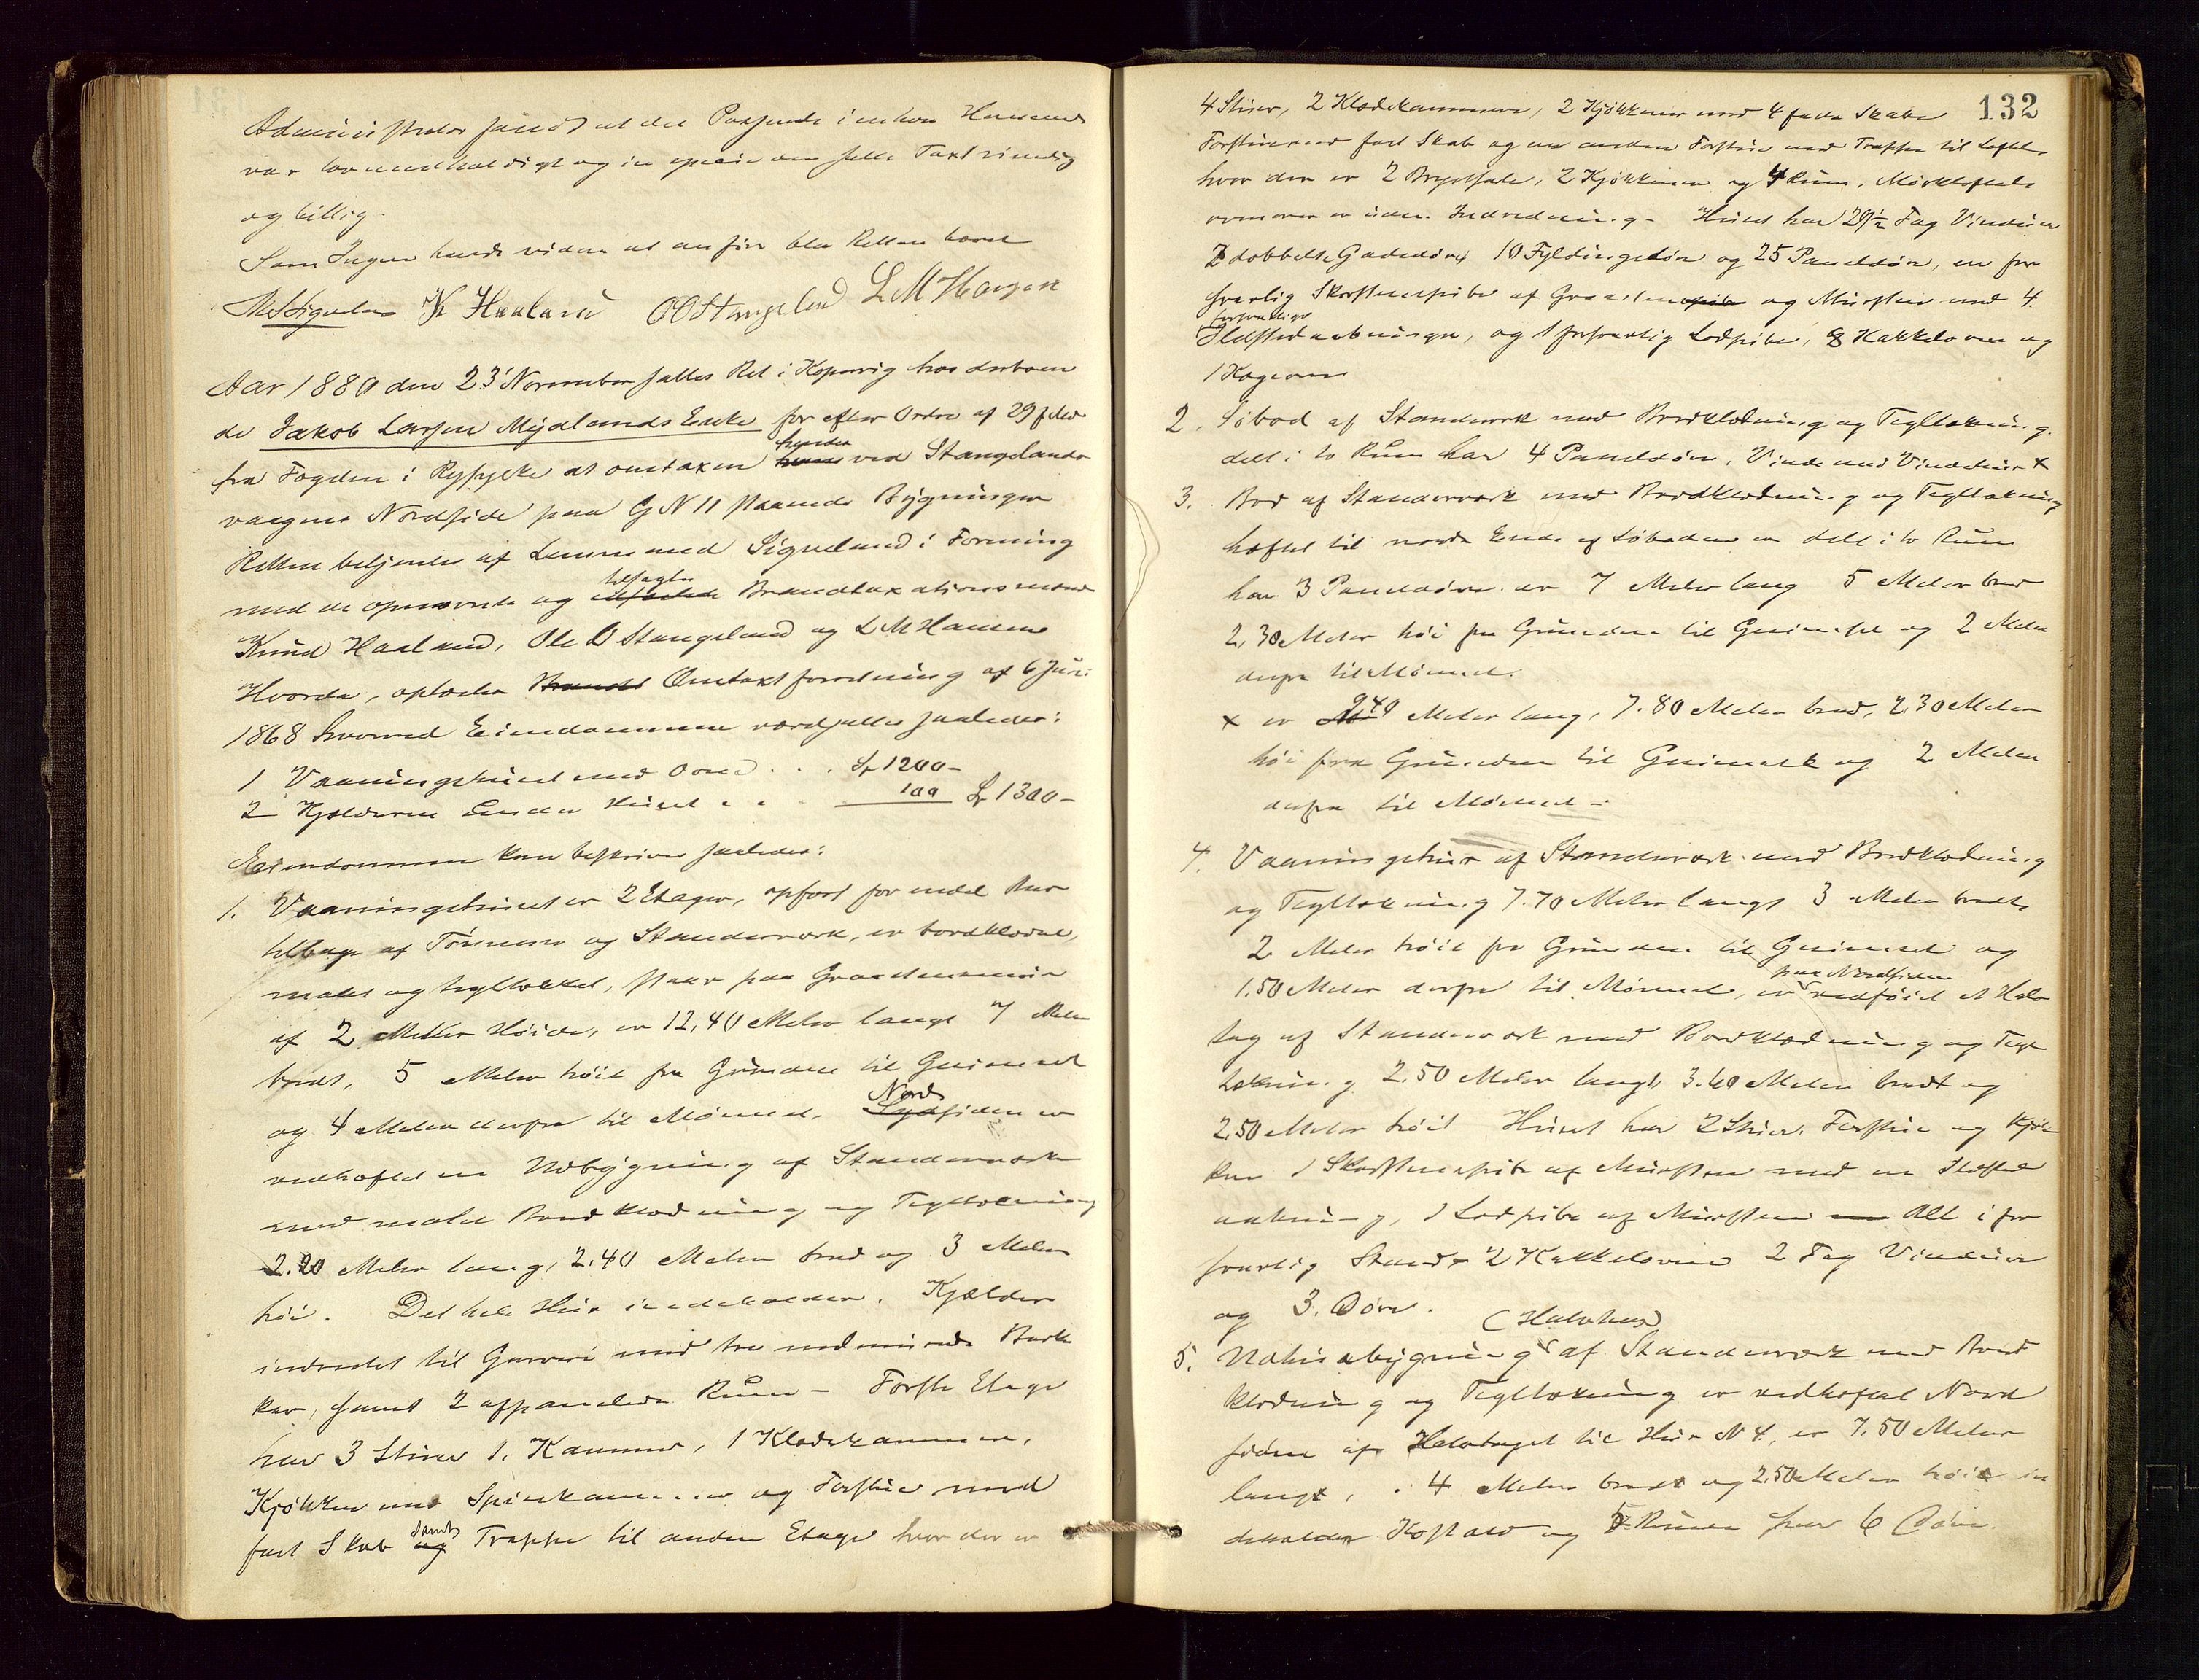 Administrator fandt at det Passerede i enhver Henseende
var lovmedholdigt og in specie den satte Taxt rimelig
og billig.
Som Ingen havde videre at anføre blev Retten hævet
K Haaland OO Stangeland L M Hansen
Aar 1880 den 23' November sattes Ret i Kopervig hos derboen
de Jakob Larsen Myslands Enke for efter Ordre af 29 f Md
fra Fogden i Ryfylke at omtaxere hendes ved Stangelands
vaagens Nordside paa G N 11 staaende Bygninger
Retten betjentes af Lensmand Sigveland i Forening
med de opnævnte og tilsagte Brandtaxationsmænd
Knud Haaland, Ole O Stangeland og L M Hansen
Hvorda, oplæstes Omtaxtforretning af 6 Juni
1868 hvorved Eiendommen værdsattes saaledes:
1 Vaaningshuset med Ovne . . . Sp 1200-
2 Kjælderen under Huset " " 100 Sp 1300-
Eiendommen kan beskrives saaledes:
1. Vaaningshuset er 2 Etager, opført for endel Aar
tilbage af Tømmer og Standerværk, er bordklædt,
malet og tegltækket, staar paa Graastensmur
af 2 Meter Høide, er 12,40 Meter langt 7 Meter
bredt, 5 Meter høit fra Grunden til Gesimset
og 4 Meter derfra til Mønnet. Nord Sydsiden er
vedhæftet en Udbygning af Standerværk
med malet Bordklædning og Tegltækning
2.20 Meter lang, 2.40 Meter bred og 3 Meter
høi. Det hele Hus indeholder. Kjælder
indredet til Garveri med tre nedmurede Bark
kar, samt 2 afpanelede Rum - Første Etage
har 3 Stuer 1. Kammer, 1 Klædekammer,
Kjøkken med Spisekammer og Forstue med
fast Skab samt og Trappe til anden Etage hvor der er
132
4 Stuer, 2 Klædekammere, 2 Kjøkkener med 4 faste Skabe
Forstue med fast Skab og en anden Forstue med Trappe til Loftet
hvor der er 2 Brystfald, 2 Kjøkkener og 4 Rum, Mørkloftet
ovenover er uden Indredning - Huset har 29½ Fag Vinduer
2 dobbelte Gadedøre 10 Fyldingsdøre og 25 Paneldøre, en for
svarlig Skorstenspibe af Graasten og Mursten med 4
forsvarlige
Ildstedaabninger, og 1 forsvarlig Lodpibe, 8 Kakkelovne og
1 Kogeovn
2. Søbod af Standerværk med Bordklædning og Tegltækning.
delt i to Rum har 4 Paneldøre, Vinde med Vindehus x
3. Bod af Standerværk med Bordklædning og Tegltækning
hæftet til nordre Ende af Søboden er delt i to Rum
har 3 Paneldøre er 7 Meter lang 5 Meter bred
2,30 Meter høi fra Grunden til Gesimset og 2 Meter
derfra til Mønnet.
x er 9.40 Meter lang, 7.80 Meter bred, 2,30 Meter
høi fra Grunden til Gesimset og 2 Meter
derfra til Mønnet -
4. Vaaningshus af Standerværk med Bordklædning
og Tegltækning 7.70 Meter langt 3 Meter bredt
2 Meter høit fra Grunden til Gesimset og
1.50 Meter derfra til Mønnet, er paa Nordsiden vedføiet et Halv
tag af Standerværk med Bordklædning og Tegl
tækning 2.50 Meter langt, 3.60 Meter bredt og
2,50 Meter høit Huset har 2 Stuer, Forstue og Kjøk
ken 1 Skorstenspibe af Mursten med en Ildsted
aabning, 1 Lodpibe af Mursten Alt i for
svarlig Stand 2 Kakkelovne 2 Fag Vinduer
og 3. Døre.
(Halvhus)
5. Udhusbygning af Standerværk med Bord
klædning og Tegltækning er vedhæftet Nord
siden af Halvtaget til Hus N 4, er 7.50 Meter
langt, 4 Meter bredt og 2,50 Meter høit in
deholder Kostald og 5 Rum har 6 Døre.